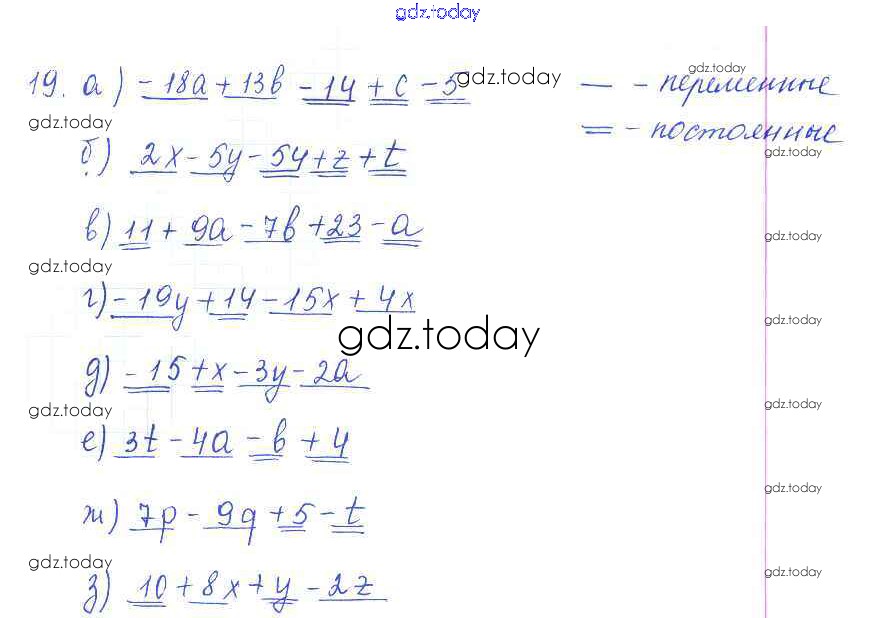 gdz.today
19. а) -18a + 13b - 14 + c - 5 gdz.today gdz.today — - переменные
gdz.today = - постоянные
б) 2x - 5y - 54 + z + t gdz.today
в) 11 + 9a - 7b + 23 - a gdz.today
gdz.today
г) -19y + 14 - 15x + 4x gdz.today
gdz.today
д) -15 + x - 3y - 2a
gdz.today gdz.today
е) 3t - 4a - b + 4
gdz.today
ж) 7p - 9q + 5 - t
gdz.today gdz.today
з) 10 + 8x + y - 2z